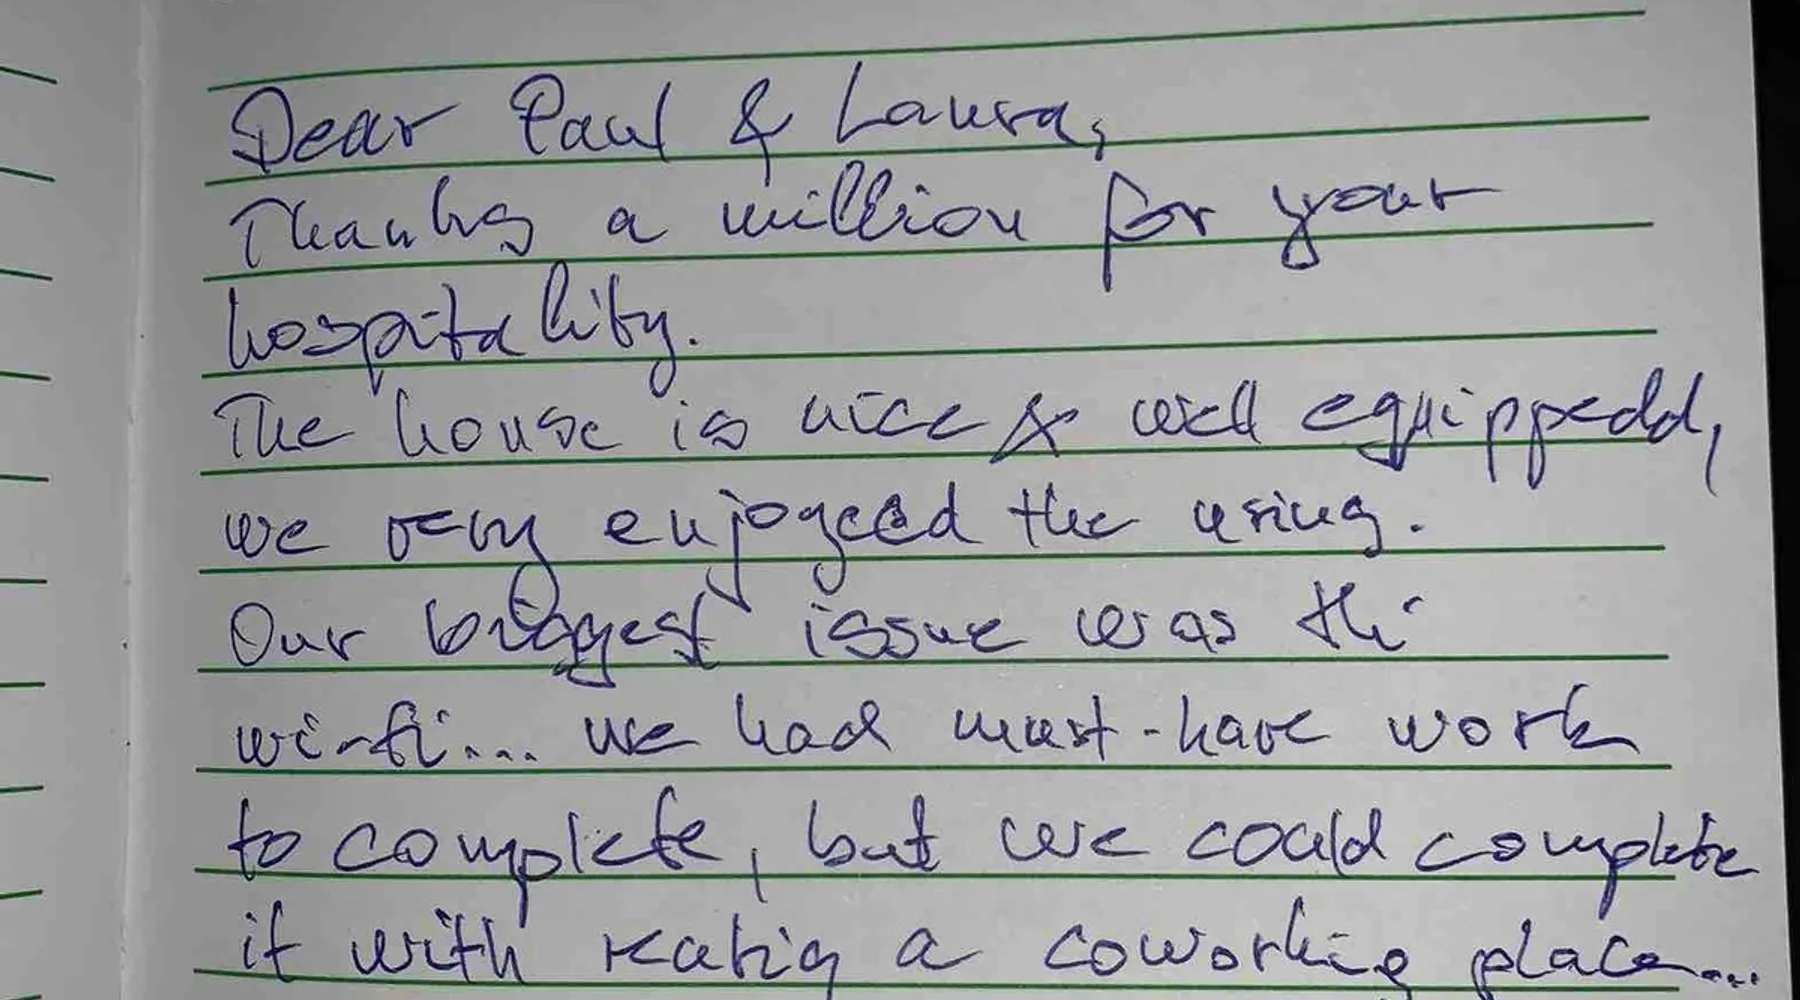 Dear Paul & Laura,
Thanks a million for your
hospitality.
The house is nice & well equippedd,
we very enjoyeed the using.
Our biggest issue was the
wi-fi... we had must-have work
to complete, but we could complete
it with a coworking place...